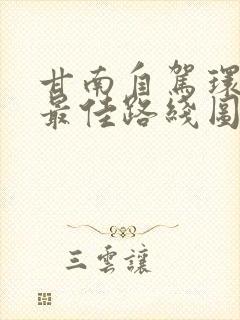 甘南自駕環
最佳路綫圖
三雲讓